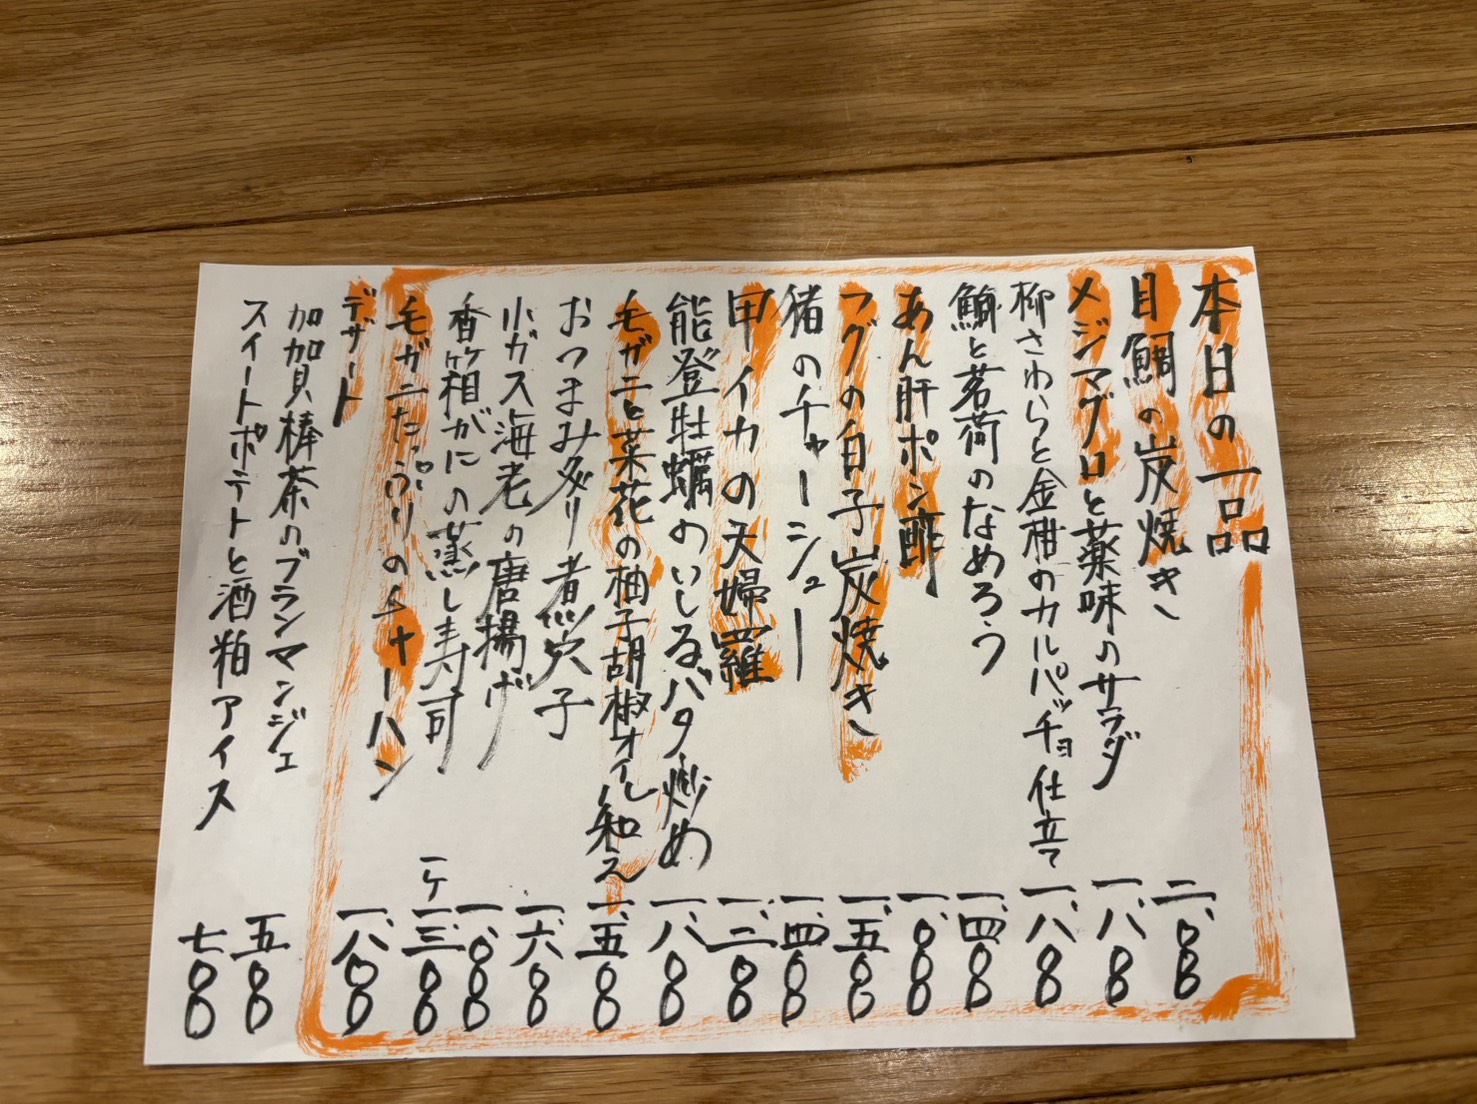 本日の一品
目鯛の炭焼き 二、〇〇〇
メジマグロと薬味のサラダ 一、八〇〇
柳さわらと金柑のカルパッチョ仕立て 一、八〇〇
鰤と茗荷のなめろう 一、四〇〇
あん肝ポン酢 一、〇〇〇
フグの白子炭焼き 一、五〇〇
猪のチャーシュー 一、四〇〇
甲イカの天婦羅 一、二〇〇
能登牡蠣のいしるバタ炒め 一、八〇〇
毛ガニと菜花の柚子胡椒オイル和え 一、五〇〇
おつまみ炙り煮穴子 一、六〇〇
小ガス海老の唐揚げ 一、〇〇〇
香箱がにの蒸し寿司 一ケ 一、三〇〇
毛ガニたっぷりのチャーハン 一、八〇〇
デザート
加賀棒茶のブランマンジェ 五〇〇
スイートポテトと酒粕アイス 七〇〇